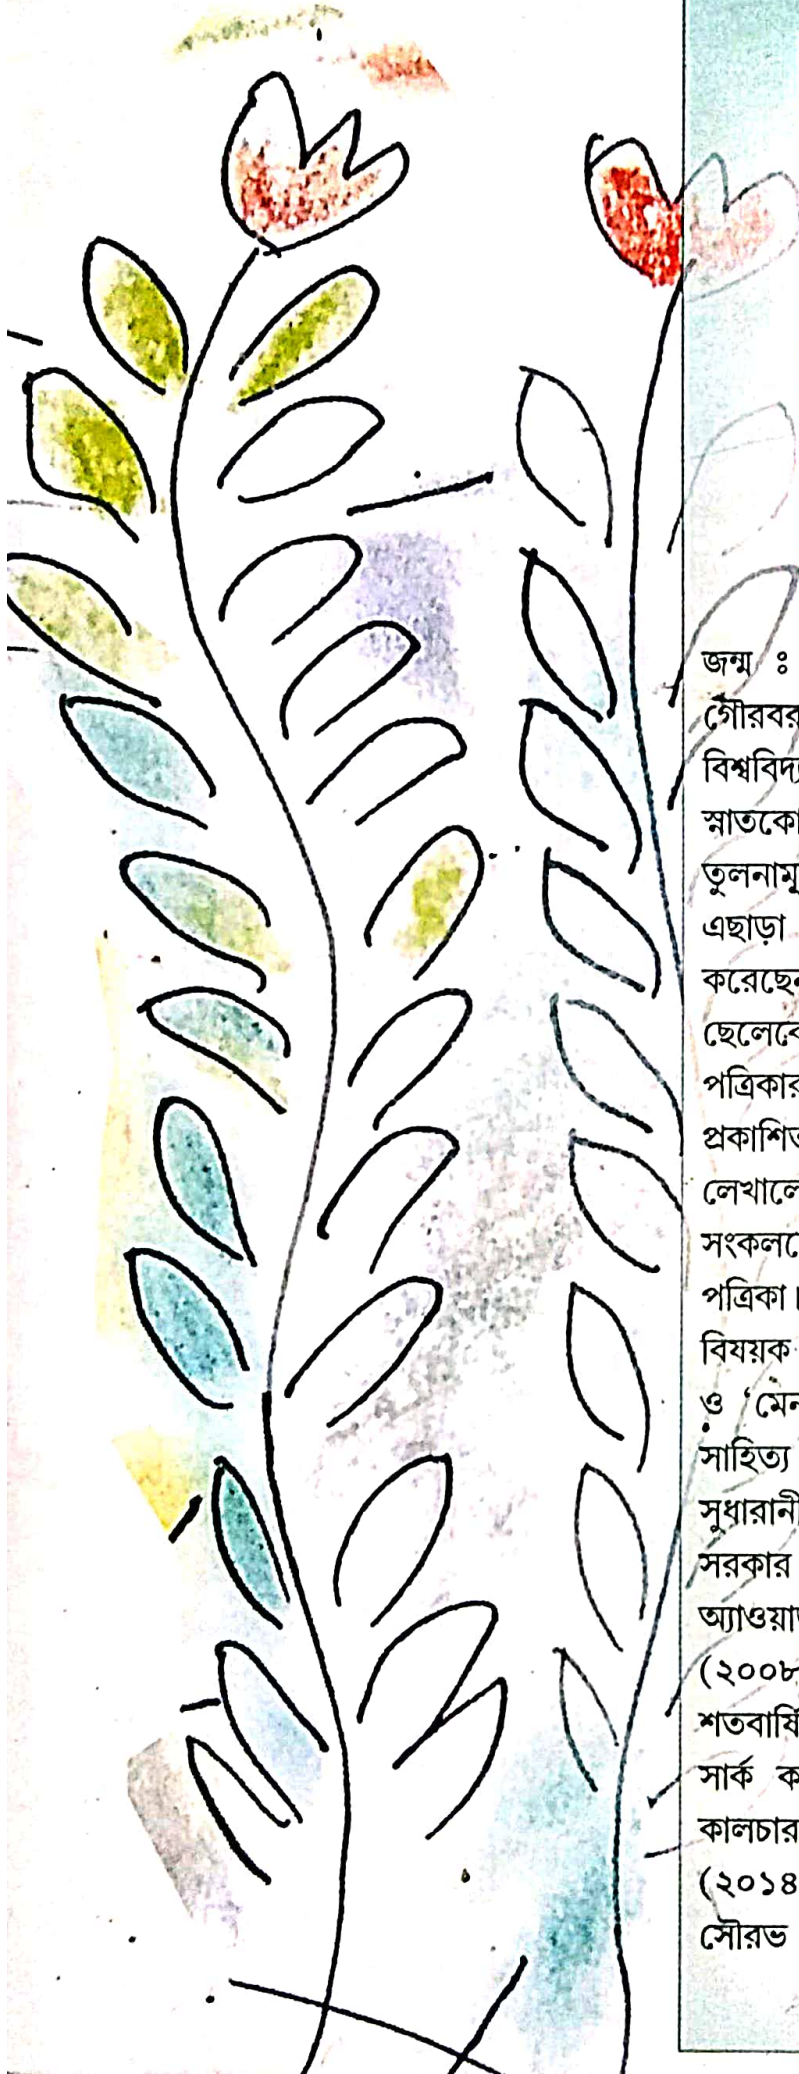 জন্ম ঃ
গৌরবর
বিশ্ববিদ্য
স্নাতকো
তুলনামূ
এছাড়া
করেছেন
ছেলেবে
পত্রিকার
প্রকাশিত
লেখালে
সংকলনে
পত্রিকা।
বিষয়ক
ও ‘মেন
সাহিত্য
সুধারানী
সরকার
অ্যাওয়ার্ড
(২০০৮
শতবার্ষি
সার্ক ক
কালচার
(২০১৪
সৌরভ